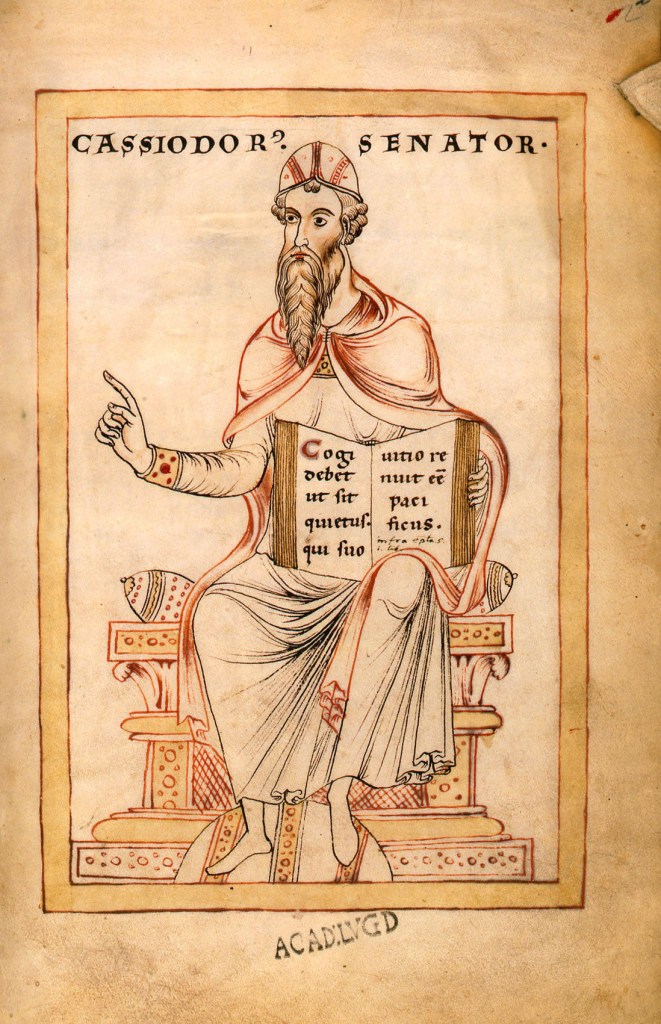 CASSIODORꝰ. SENATOR·
Cogi
debet
ut sit
quietus.
qui suo
uitio re
nuit ee̅
paci
ficus.
infra
ACAD. LVGD